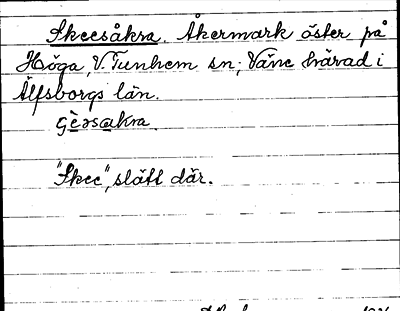 Skeesåkra. Åkermark öster på
Höga, V. Tunhem sn; Väne härad i
Älfsborgs län.
"Skee", slätt där.